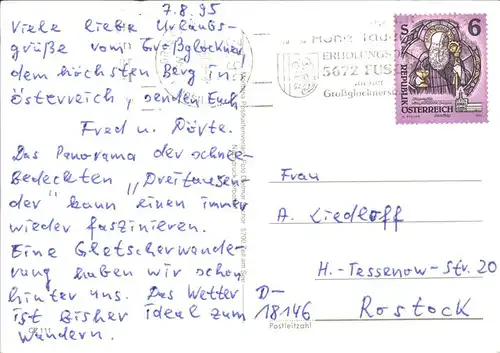 7.8.95
Viele liebe Urlaubs-
grüße vom Großglockner,
dem höchsten Berg in
Österreich, senden Euch
Fred u. Dörte.
Das Panorama der schnee-
bedeckten "Dreitausen-
der" kann einen immer
wieder faszinieren.
Eine Gletscherwande-
rung haben wir schon
hinter uns. Das Wetter
ist bisher ideal zum
Wandern.
GK 111
HOHE TAU
ERHOLUNGS
5672 FUS
an der
Großglocknerst
S 6
REPUBLIK
ÖSTERREICH
Frau
A. Liedloff
H.-Tessenow-Str. 20
D-
18146 Rostock
Postleitzahl